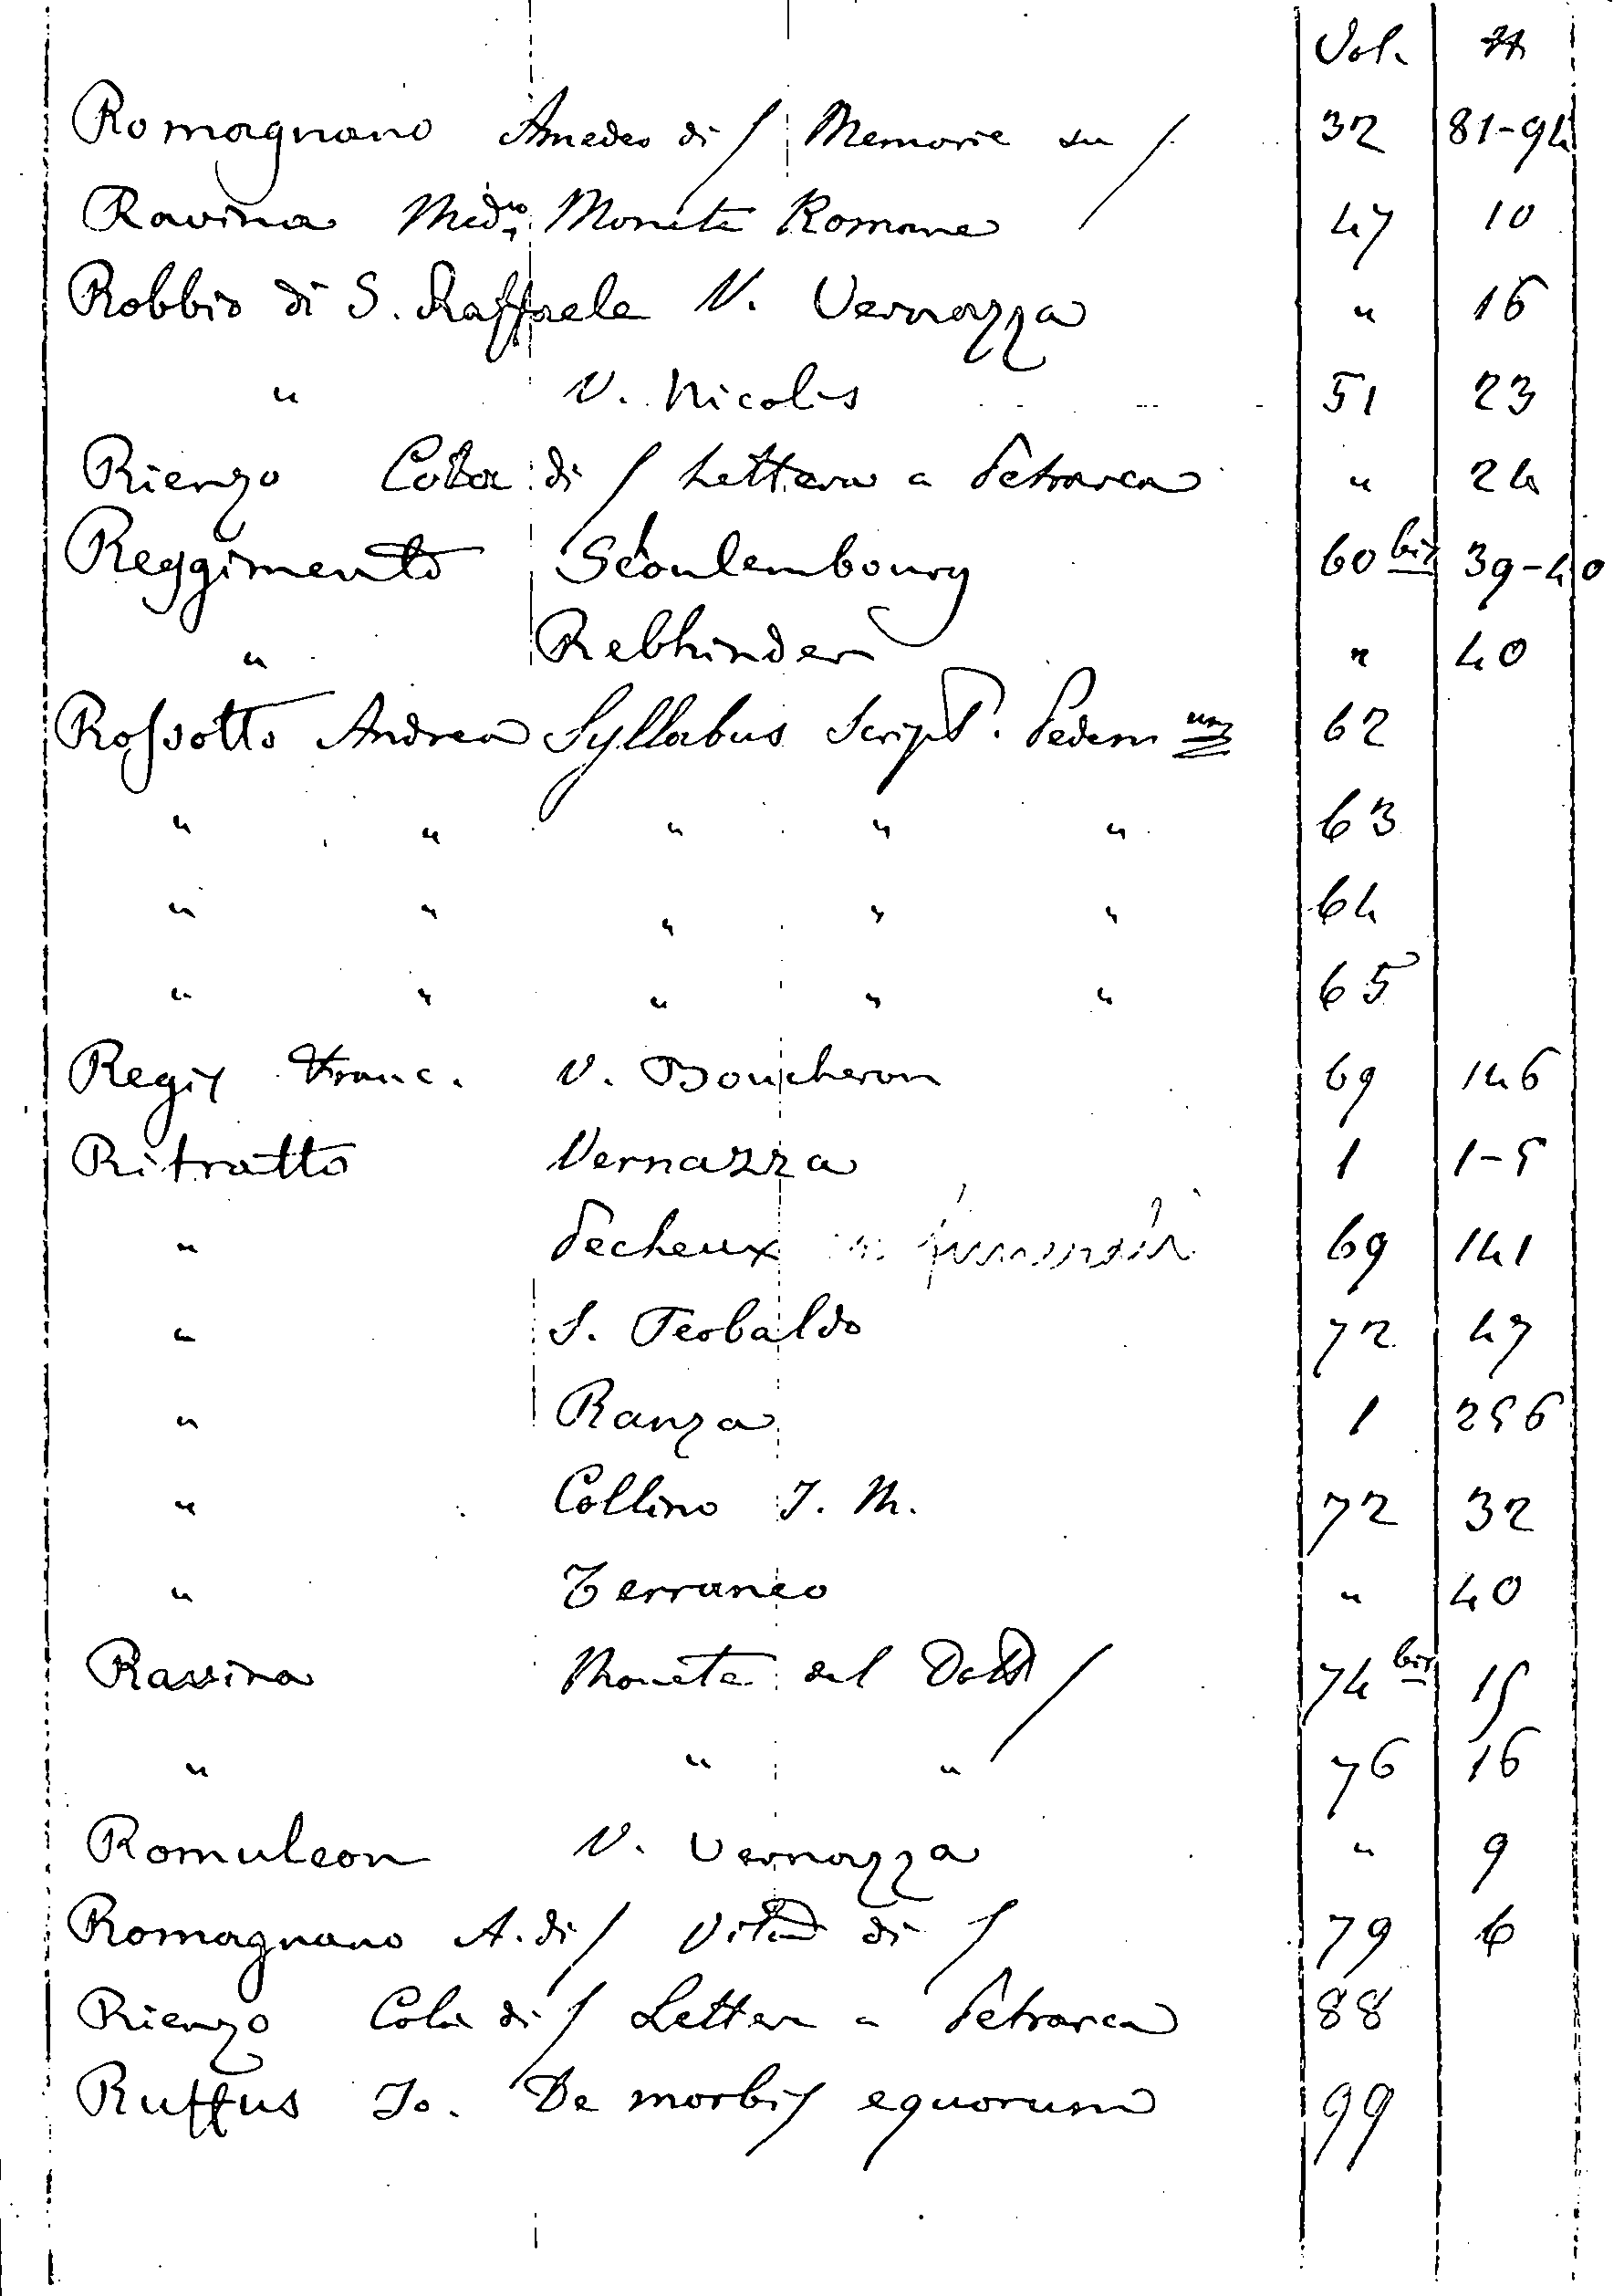 Vol. #
Romagnano Amedeo di / Memorie su / 32 81-94
Ravina Med.co Monete Romane 47 10
Robbio di S. Raffaele V. Vernazza " 16
" V. Nicolis 51 23
Rienzo Cola di / Lettera a Petrarca " 24
Reggimento Scoulembourg 60 bis 39-40
" Rebhinder " 40
Rossotto Andrea Syllabus Script. Pedem um 62
" " " " " 63
" " " " " 64
" " " " " 65
Regis Franc. V. Boucheron 69 146
Ritratto Vernazza 1 1-5
" Pecheux 69 141
" S. Teobaldo 72 47
" Ranza 1 256
" Collino I. M. 72 32
" Terraneo " 40
Ravina Monete del Dott / 74 bis 15
" " " 76 16
Romuleon V. Vernazza " 9
Romagnano A. di / Vita di / 79 6
Rienzo Cola di / Lettera a Petrarca 88
Ruffus Jo. De morbis equorum 99